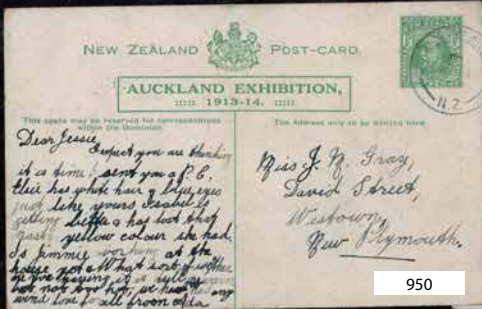 NEW ZEALAND POST-CARD.
AUCKLAND EXHIBITION,
1913-14.
This space may be reserved for correspondence
within the Dominion.
The Address only to be written here
Dear Jessie
Expect you are thinking
it is time I sent you a P.C.
Elsie has white hair & blue eyes
just like yours Isabel is
getting betta & has lost that
nasty yellow colour she had.
Is Jimmie working at the
house yet. What sort of weather
are you having it is
but not too hot, we any
wind love to all from Ada
Miss J. N. Gray,
David Street,
Westown,
New Plymouth.
N.Z
950